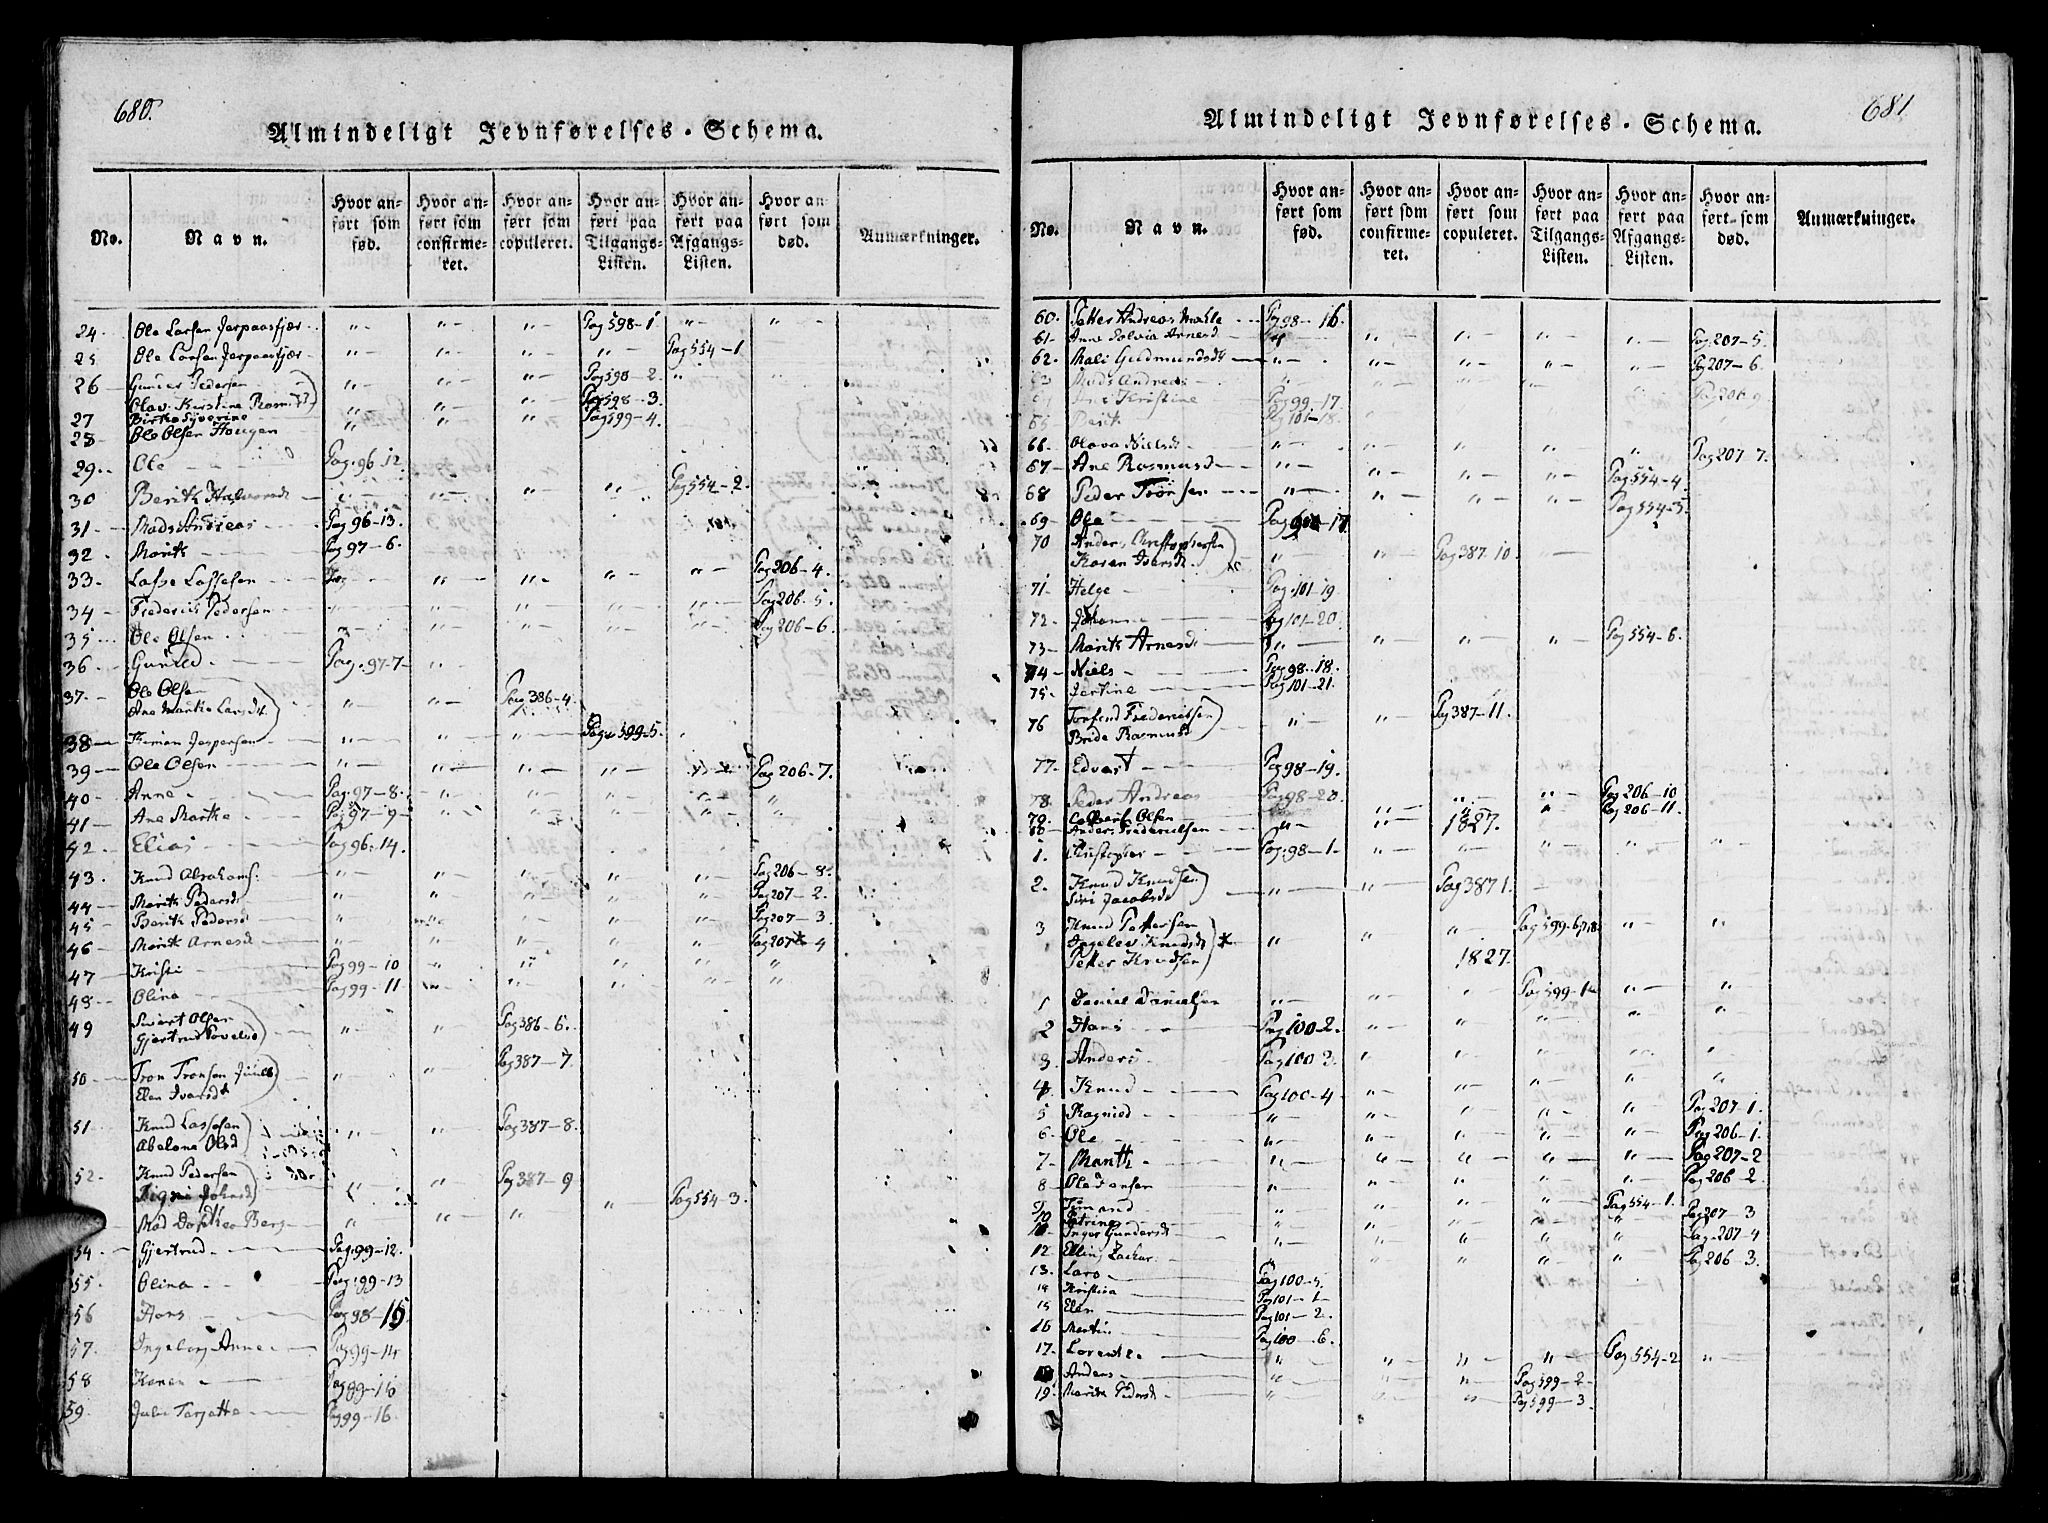 680.
Almindeligt Jevnførelses-Schema.
No. Navn. Hvor anført som fød. Hvor anført som confirmeret. Hvor anført som copuleret. Hvor anført paa Tilgangs-Listen. Hvor anført paa Afgangs-Listen. Hvor anført som død. Anmærkninger.
24 Ole Larsen Jerpaasfjær Pag 598-1
25 Ole Larsen Jerpaasfjær Pag 554-1
26 Gunder Pedersen Pag 598-2
Olav. Kirstine Rasmusd Pag 598-3
27 Birthe Syverine Pag 599-4
28 Ole Olsen Hougen
29 Ole Pag. 96-12
30 Berith Halvorsd Pag 554-2
31 Mads Andreas Pag 96-13
32 Marith Pag 97-6
33 Lasse Lassesen Pag 206-4
34 Frederik Pedersen Pag 206-5
35 Ole Olsen Pag 206-6
36 Gunild Pag. 97-7
37 Ole Olsen Pag 386-4
Ane Marthe Larsd
38 Simon Jespersen Pag 599-5
39 Ole Olsen Pag 206-7
40 Anne Pag 97-8
41 Ane Marthe Pag 97-9
42 Elias Pag 96-14
43 Knud Abrahams. Pag 206-8
44 Marith Pedersd Pag 207-2
45 Berith Pedersd Pag 207-3
46 Marith Arnesd Pag 207-4
47 Kristi Pag 99-10
48 Olina Pag 99-11
49 Sivert Olsen Pag 386-6
Gjertrud Povelsd
50 Tron Tronsen Pag 387-7
Elen Ivarsd
51 Knud Lassesen Pag 387-8
Abelone Olsd
52 Knud Pedersen Pag 387-9
Signi Johnsd
Mad Dorthea Berg Pag 554-3
54 Gjertrud Pag. 99-12
55 Olina Pag 99-13
56 Hans Pag 98-15
57 Ingeborg Anne Pag 99-14
58 Karen Pag 99-15
59 Pag 99-16
681
Almindeligt Jevnførelses-Schema.
No. Navn. Hvor anført som fød. Hvor anført som confirmeret. Hvor anført som copuleret. Hvor anført paa Tilgangs-Listen. Hvor anført paa Afgangs-Listen. Hvor anført som død. Anmærkninger.
60 Petter Andreas Pag 98-16
61 Anne Solvia Arnesd Pag 207-5
62 Mali Gudmundsd Pag 207-6
63 Mads Andreas
64 Ane Kristine Pag 99-17
65 Berit Pag 101-18
66 Olava Nielsd Pag 207 7
67 Ane Rasmusd Pag 554-4
68 Peder Tronsen Pag 554-5
69 Ole
70 Anders Christophersen Pag 387-10
Karen Iversd
71 Helge Pag. 101-19
72 Johanne Pag 101-20
73 Marith Arnesd Pag 554-6
74 Niels Pag 98-18
75 Jertine Pag 101-21
76 Torsend Frederiksen Pag 387-11
Bride Rasmusd
77 Edvart Pag 98-19
78 Peder Andreas Pag 98-20 Pag 206-10
79 Olsen Pag 206-11
80 Anders Frederiksen
1827.
1. Christopher Pag. 98-1
2. Knud Knudsen Pag 387 1.
Siri Jacobsd
3 Knud Pettersen Pag 599-6,7,8
Ingelev Knudsd
Petter Knudsen
1827.
1 Daniel Danielsen Pag 599-1
2 Hans Pag 100-2
3 Anders Pag 100 3
4 Knud Pag 100-4
5 Ragnild Pag 207-1
6 Ole Pag 206-1
7 Marith Pag 207-2
8 Ole Jensen Pag 206-2
9 Simand Pag 554-1
10 Petrine Pag 207-3
11 Inger Gundersd Pag 207-4
12 Elling Zachar. Pag 206-3
13 Lars Pag 100-5
14 Kristina Pag 101-1
15 Elen Pag 101-2
16 Martin Pag 100-6
17 Lorentz Pag 554-2
Anders Pag 599-2
19 Marith Pedersd Pag 599-3